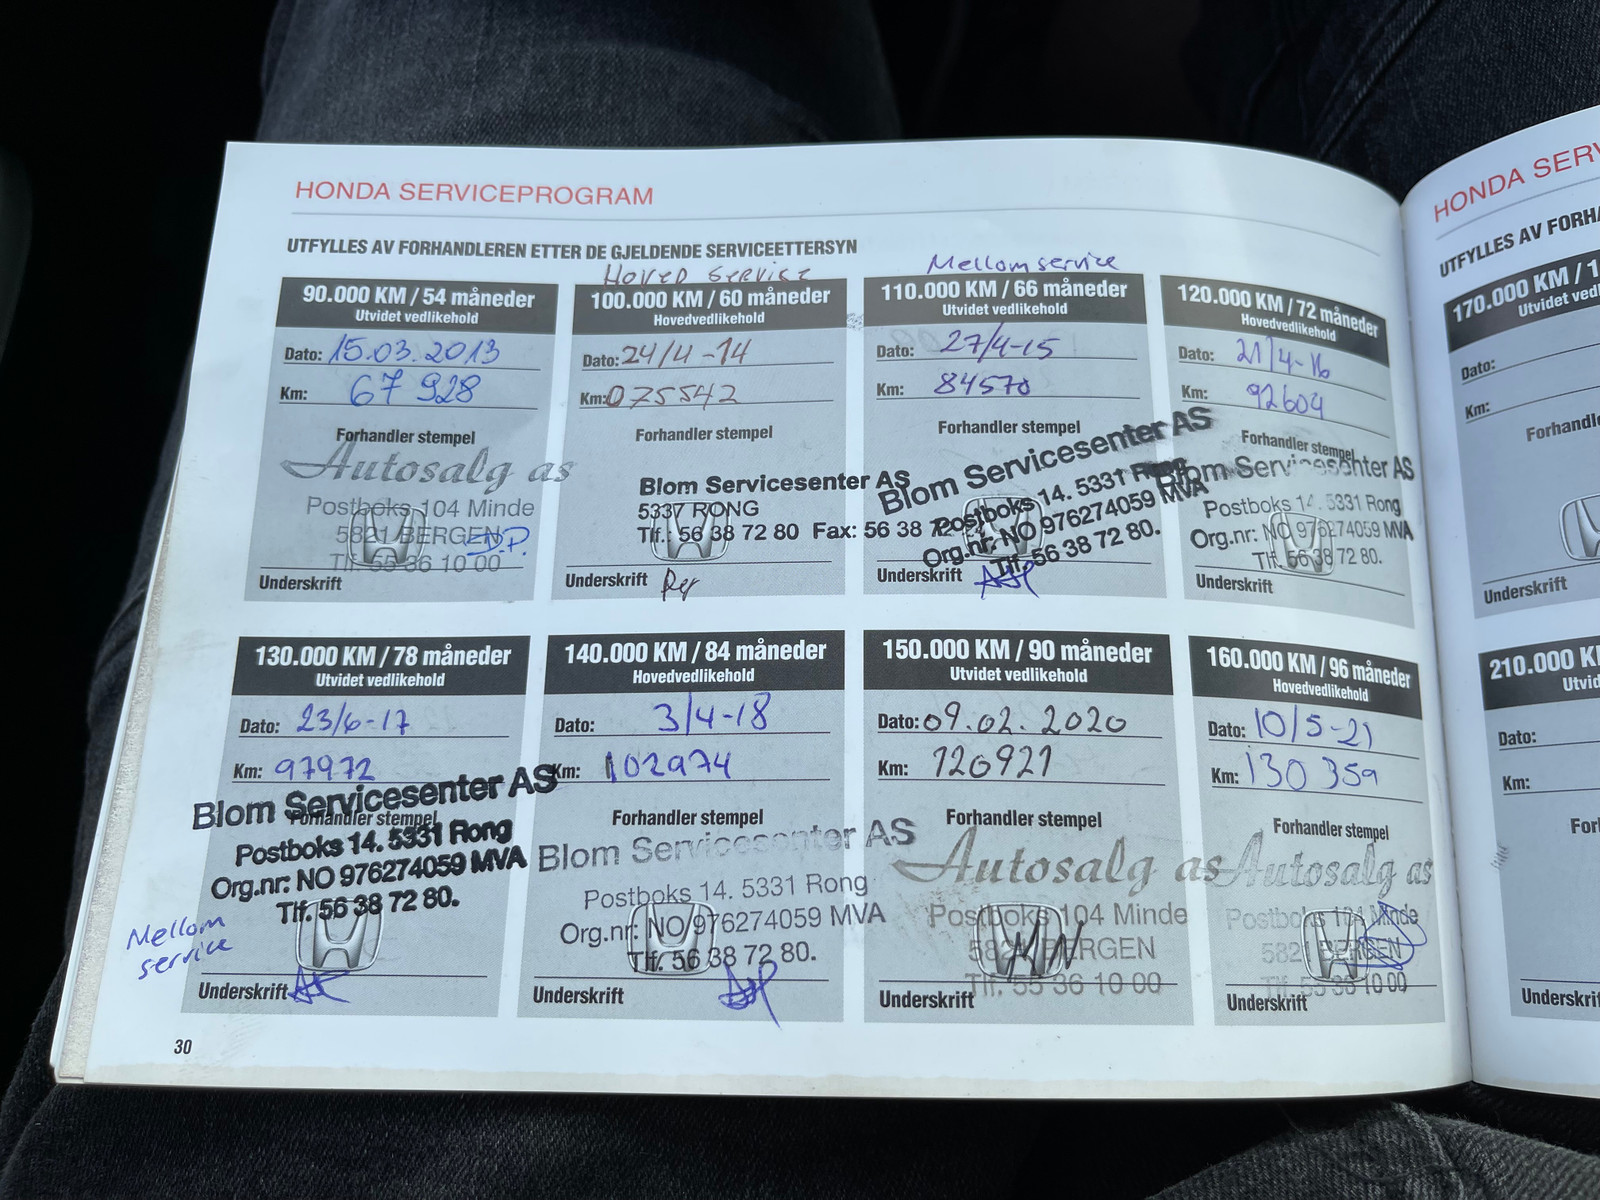 HONDA SERVICEPROGRAM
UTFYLLES AV FORHANDLEREN ETTER DE GJELDENDE SERVICEETTERSYN
HOVED SERVICE
Mellomservice
90.000 KM / 54 måneder
Utvidet vedlikehold
Dato: 15.03.2013
Km: 67 928
Forhandler stempel
Autosalg as
Postboks 104 Minde
5821 BERGEN
Tlf 55 36 10 00
D.P.
Underskrift
100.000 KM / 60 måneder
Hovedvedlikehold
Dato: 24/4-14
Km: 075542
Forhandler stempel
Blom Servicesenter AS
5337 RONG
Tlf.: 56 38 72 80 Fax: 56 38 72
Underskrift
110.000 KM / 66 måneder
Utvidet vedlikehold
Dato: 27/4-15
Km: 84570
Forhandler stempel
Blom Servicesenter AS
Postboks 14. 5331 Rong
Org.nr: NO 976274059 MVA
Tlf. 56 38 72 80.
Underskrift
120.000 KM / 72 måneder
Hovedvedlikehold
Dato: 21/4-16
Km: 92604
Forhandler stempel
Blom Servicesenter AS
Postboks 14. 5331 Rong
Org.nr: NO 976274059 MVA
Tlf. 56 38 72 80.
Underskrift
130.000 KM / 78 måneder
Utvidet vedlikehold
Dato: 23/6-17
Km: 97972
Forhandler stempel
Blom Servicesenter AS
Postboks 14. 5331 Rong
Org.nr: NO 976274059 MVA
Tlf. 56 38 72 80.
Mellom
service
Underskrift
140.000 KM / 84 måneder
Hovedvedlikehold
Dato: 3/4-18
Km: 102974
Forhandler stempel
Blom Servicesenter AS
Postboks 14. 5331 Rong
Org.nr: NO 976274059 MVA
Tlf. 56 38 72 80.
Underskrift
150.000 KM / 90 måneder
Utvidet vedlikehold
Dato: 09.02.2020
Km: 120921
Forhandler stempel
Autosalg as
Postboks 104 Minde
5821 BERGEN
Tlf. 55 36 10 00
Underskrift
160.000 KM / 96 måneder
Hovedvedlikehold
Dato: 10/5-21
Km: 130 359
Forhandler stempel
Autosalg as
Postboks 104 Minde
5821 BERGEN
Tlf. 55 36 10 00
Underskrift
30
HONDA SERV
UTFYLLES AV FORHA
170.000 KM / 1
Utvidet vedl
Dato:
Km:
Forhandle
Underskrift
210.000 K
Utvid
Dato:
Km:
Forh
Underskri